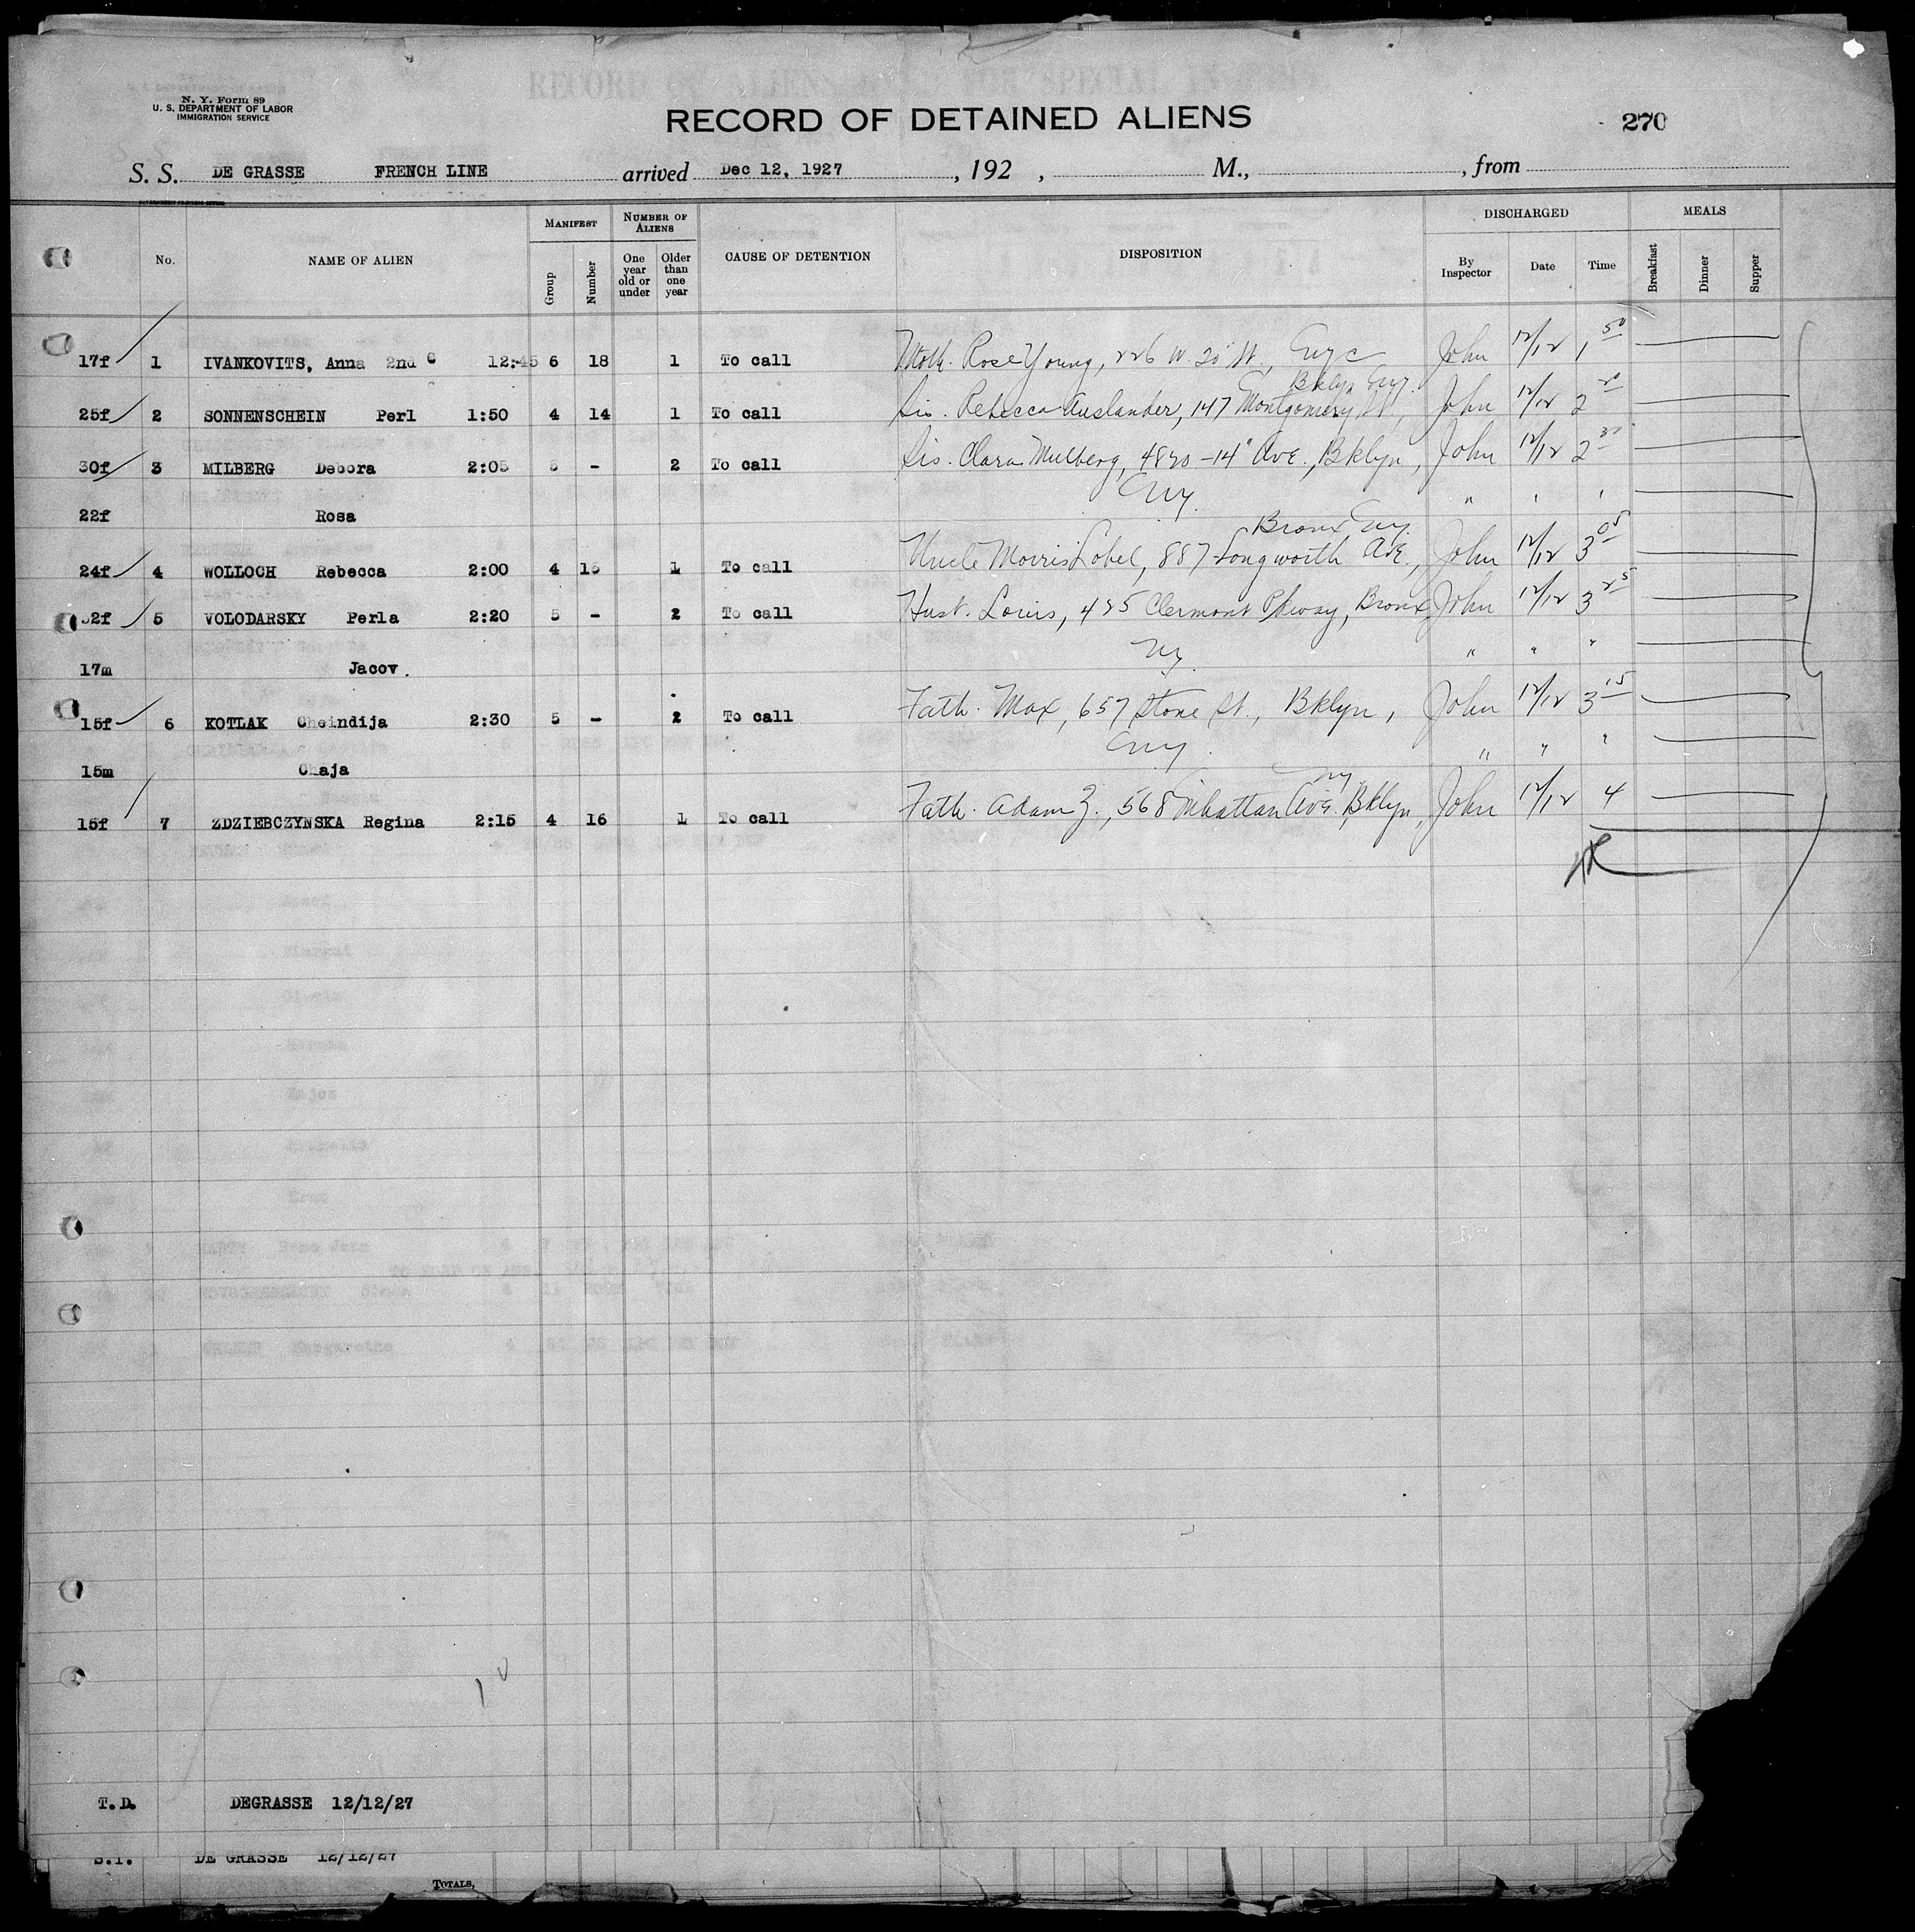 N. Y. Form 89
U. S. DEPARTMENT OF LABOR
IMMIGRATION SERVICE
RECORD OF DETAINED ALIENS
270
S. S. DE GRASSE FRENCH LINE arrived Dec 12, 1927, 192 , M., , from
No. NAME OF ALIEN MANIFEST Group Number NUMBER OF ALIENS One year old or under Older than one year CAUSE OF DETENTION DISPOSITION DISCHARGED By Inspector Date Time MEALS Breakfast Dinner Supper
17f 1 IVANKOVITS, Anna 2nd C 12:45 6 18 1 To call Moth. Rose Young, 226 W. 20" St., NYC John 12/12 1 50
Bklyn NY.
25f 2 SONNENSCHEIN Perl 1:50 4 14 1 To call Sis. Rebecca Auslander, 147 Montgomery St, John 12/12 2
30f 3 MILBERG Debora 2:05 5 - 2 To call Sis. Clara Mulberg, 4820-14" Ave., Bklyn, John 12/12 2 30
22f Rosa NY. " " "
Bronx NY.
24f 4 WOLLOCH Rebecca 2:00 4 15 1 To call Uncle Morris Lobel, 887 Longworth Ave., John 12/12 3 05
32f 5 VOLODARSKY Perla 2:20 5 - 2 To call Husb. Louis, 425 Clermont Pkway, Bronx John 12/12 3 25
17m Jacov. NY. " " "
15f 6 KOTLAK Cheindija 2:30 5 - 2 To call Fath. Max, 657 Stone St., Bklyn, John 12/12 3 15
15m Chaja NY. " " "
NY
15f 7 ZDZIEBCZYNSKA Regina 2:15 4 16 1 To call Fath. Adam Z., 568 Mhattan Ave. Bklyn, John 12/12 4
T.D. DEGRASSE 12/12/27
S.I. DE GRASSE 12/12/27
TOTALS,